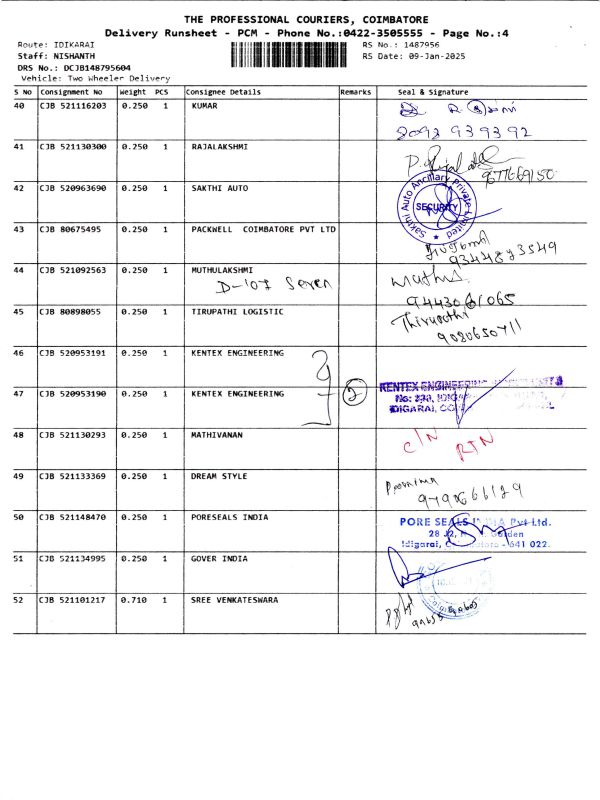 THE PROFESSIONAL COURIERS, COIMBATORE
Delivery Runsheet - PCM - Phone No.:0422-3505555 - Page No.:4
Route: IDIKARAI RS No.: 1487956
Staff: NISHANTH RS Date: 09-Jan-2025
DRS No.: DCJB148795604
Vehicle: Two Wheeler Delivery
S No Consignment No Weight PCS Consignee Details Remarks Seal & Signature
40 CJB 521116203 0.250 1 KUMAR
41 CJB 521130300 0.250 1 RAJALAKSHMI
42 CJB 520963690 0.250 1 SAKTHI AUTO
Sakthi Auto Ancillary Private Limited
SECURITY
43 CJB 80675495 0.250 1 PACKWELL COIMBATORE PVT LTD
9344873549
44 CJB 521092563 0.250 1 MUTHULAKSHMI
D-107 Seven
45 CJB 80898055 0.250 1 TIRUPATHI LOGISTIC Thirupathi
9080650711
46 CJB 520953191 0.250 1 KENTEX ENGINEERING
47 CJB 520953190 0.250 1 KENTEX ENGINEERING 2
KENTEX ENGINEERING
48 CJB 521130293 0.250 1 MATHIVANAN C/N
RTN
49 CJB 521133369 0.250 1 DREAM STYLE
50 CJB 521148470 0.250 1 PORESEALS INDIA
PORE SEALS INDIA Pvt Ltd.
Idigarai, Coimbatore - 641 022.
51 CJB 521134995 0.250 1 GOVER INDIA
52 CJB 521101217 0.710 1 SREE VENKATESWARA